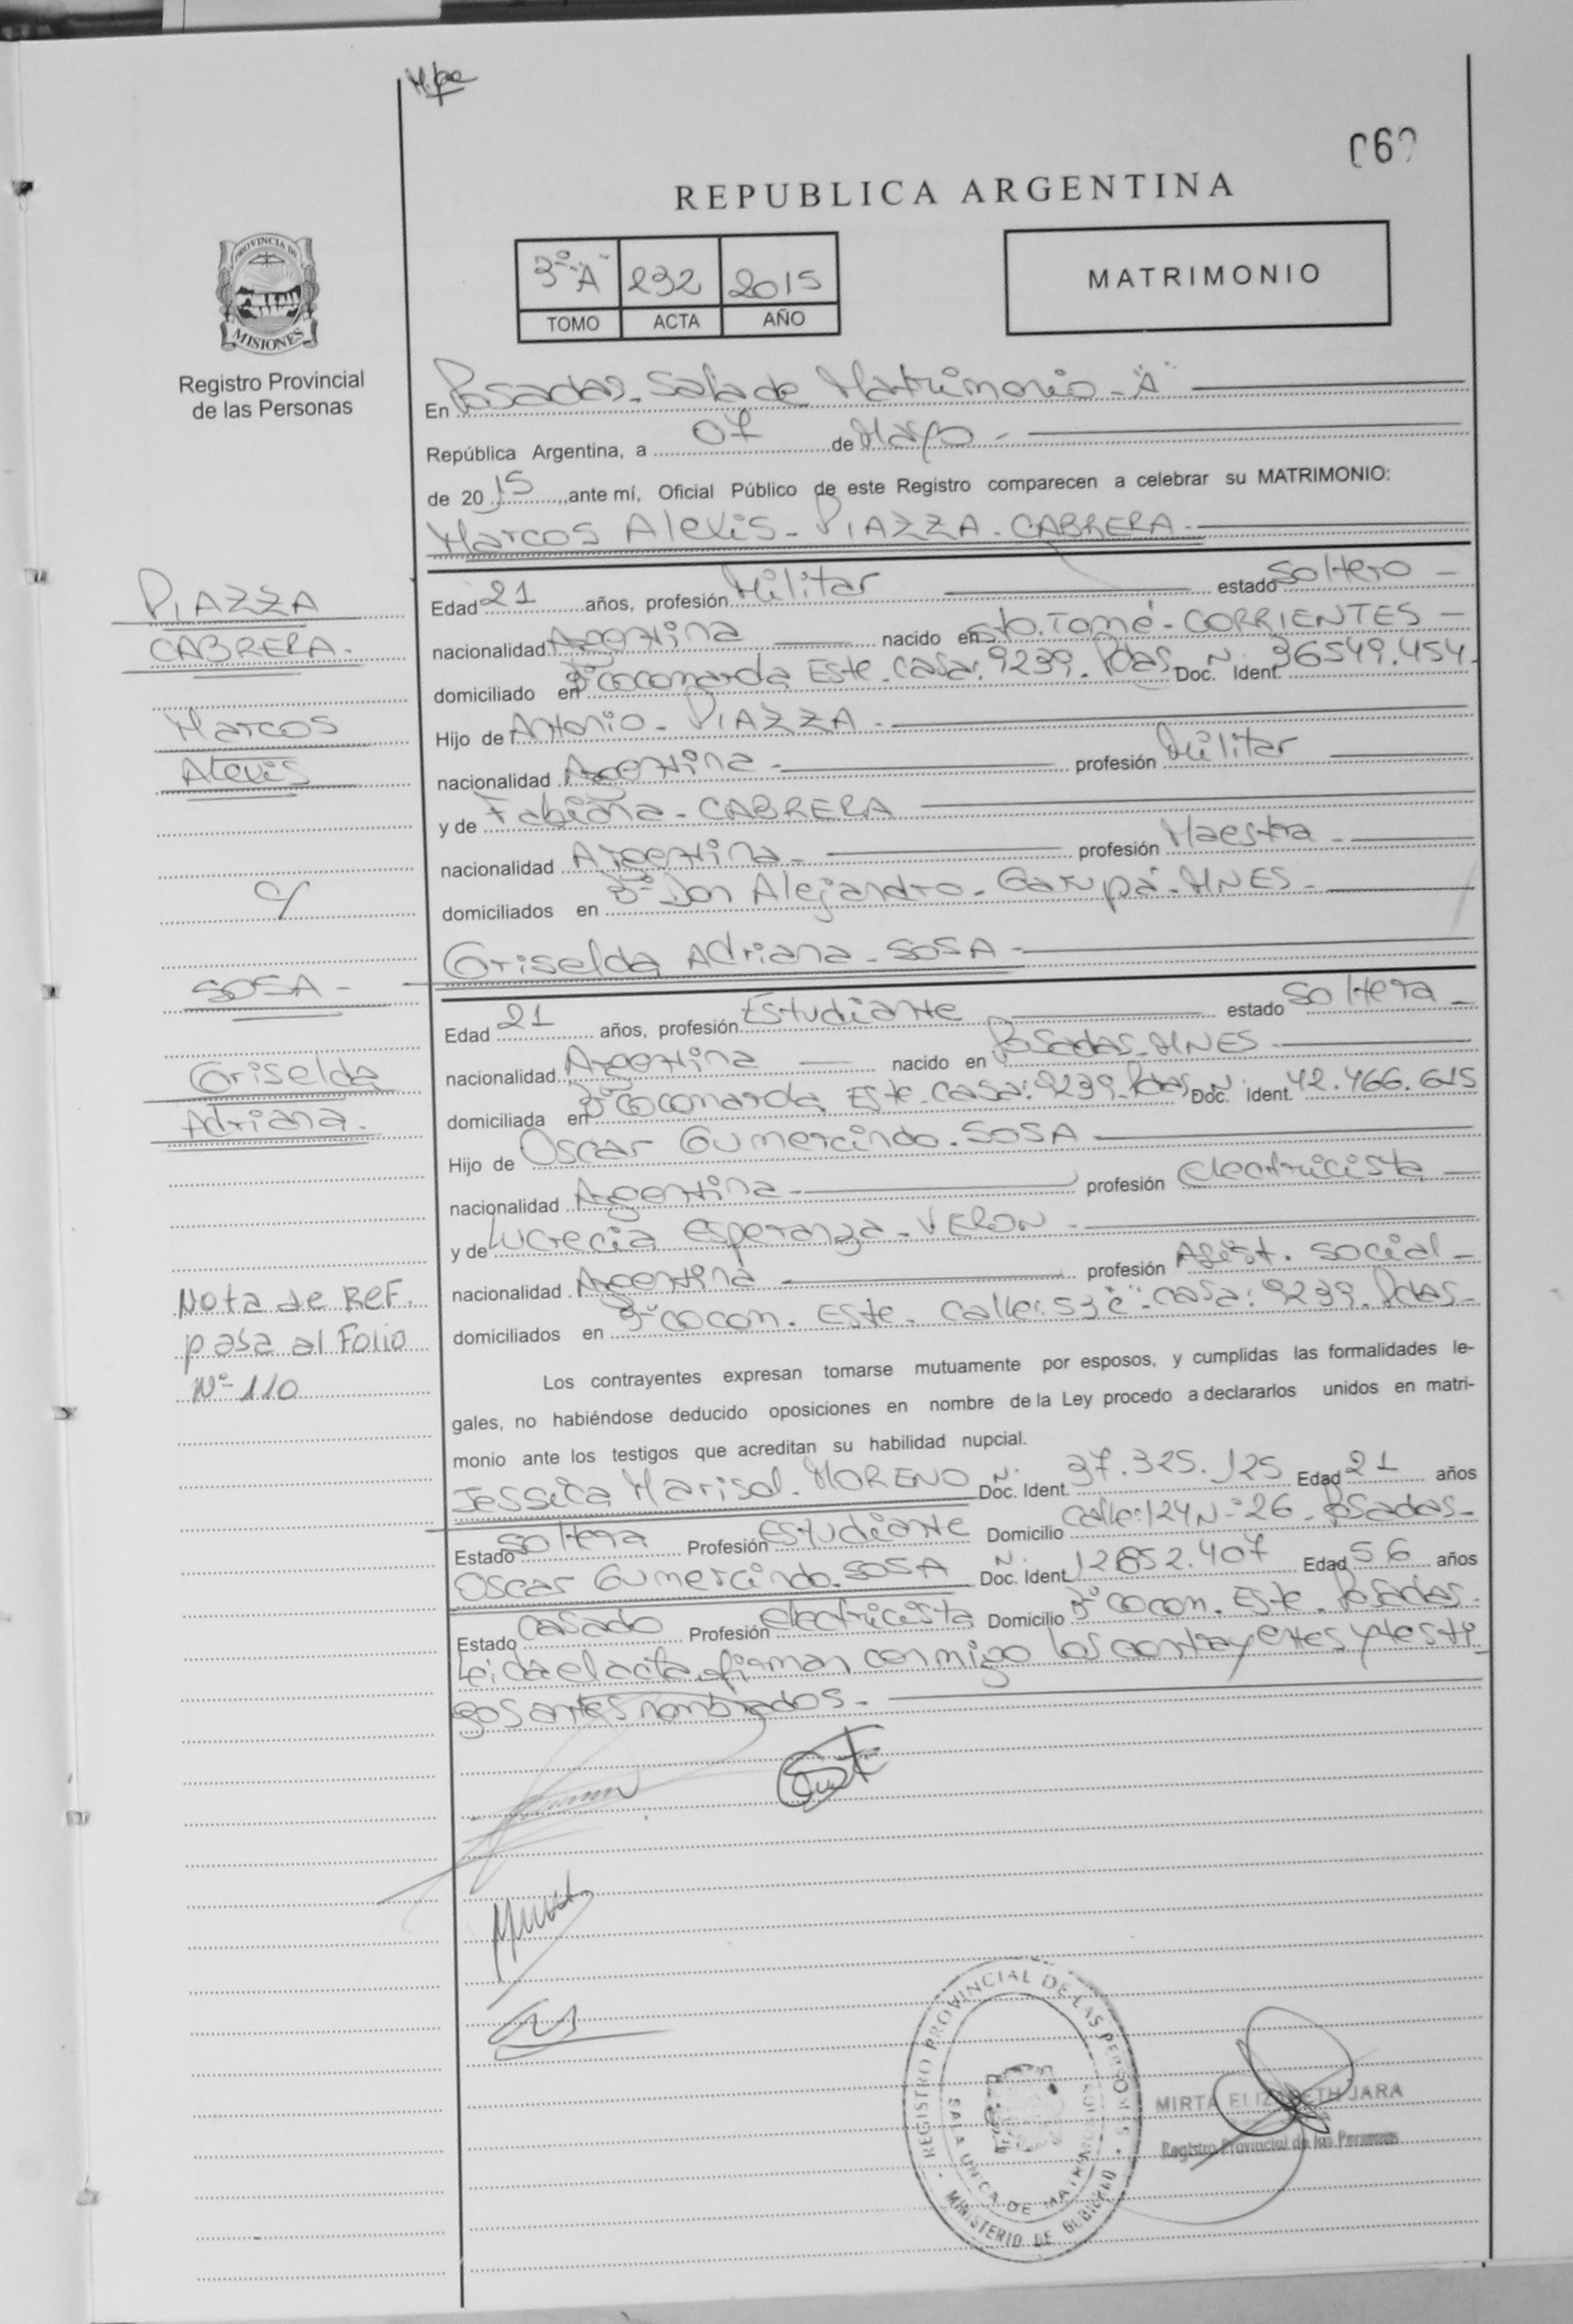 069
REPUBLICA ARGENTINA
3º "A" 232 2015
TOMO ACTA AÑO
MATRIMONIO
PROVINCIA DE
MISIONES
Registro Provincial
de las Personas
En Posadas. Sala de Matrimonio - "A"
República Argentina, a 07 de Mayo -
de 2015, ante mí, Oficial Público de este Registro comparecen a celebrar su MATRIMONIO:
Marcos Alexis - PIAZZA - CABRERA -
PIAZZA
CABRERA -
Marcos
Alexis
c/
SOSA -
Griselda
Adriana.
Nota de REF.
pasa al Folio
Nº 110
Edad 21 años, profesión Militar estado Soltero -
nacionalidad Argentina nacido en Sto. Tomé - CORRIENTES -
domiciliado en Bº Cocomarola Este - casa: 9239. Pdas Doc. N. Ident. 36549.454.
Hijo de Antonio - PIAZZA -
nacionalidad Argentina - profesión Militar
y de Fabiana - CABRERA
nacionalidad Argentina - profesión Maestra -
domiciliados en Bº Don Alejandro - Garupá - MNES -
Griselda Adriana - SOSA -
Edad 21 años, profesión Estudiante estado Soltera -
nacionalidad Argentina nacido en Posadas - MNES -
domiciliada en Bº Cocomarola Este - casa: 9239. Pdas Doc. N. Ident. 42.466.615
Hijo de Oscar Gumercindo - SOSA
nacionalidad Argentina - profesión electricista -
y de Lucrecia Esperanza - VERON -
nacionalidad Argentina profesión Asist. Social -
domiciliados en Bº Cocom. Este - Calle: 53 "c" - casa: 9239. Pdas -
Los contrayentes expresan tomarse mutuamente por esposos, y cumplidas las formalidades le-
gales, no habiéndose deducido oposiciones en nombre de la Ley procedo a declararlos unidos en matri-
monio ante los testigos que acreditan su habilidad nupcial.
Jessica Marisol - MORENO Doc. N. Ident. 37.325.125 Edad 21 años
Estado soltera Profesión Estudiante Domicilio Calle: 124 Nº 26 - Posadas -
Oscar Gumercindo - SOSA Doc. N. Ident. 12852.407 Edad 56 años
Estado Casado Profesión electricista Domicilio Bº Cocom. Este - Posadas -
Leida el acta, firman conmigo los contrayentes y testi-
gos antes nombrados -
REGISTRO PROVINCIAL DE LAS PERSONAS
SALA UNICA DE MATRIMONIOS
MINISTERIO DE GOBIERNO
MIRTA ELIZABETH JARA
Registro Provincial de las Personas